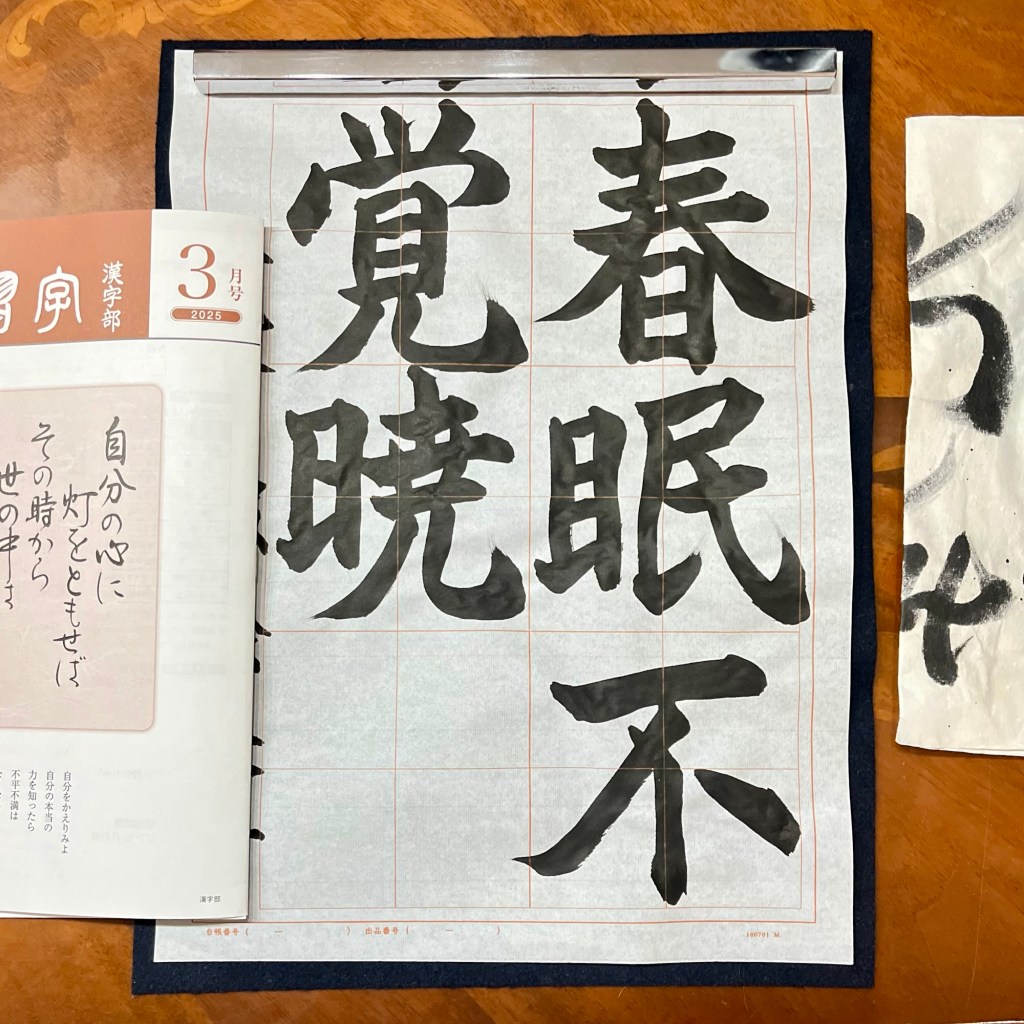 春眠不
覚暁
習字
漢字部
3月号
2025
自分の心に
灯をともせば
その時から
世の中は
自分をかえりみよ
自分の本当の
力を知ったら
不平不満は
漢字部
台帳番号( ー ) 出品番号( ー )